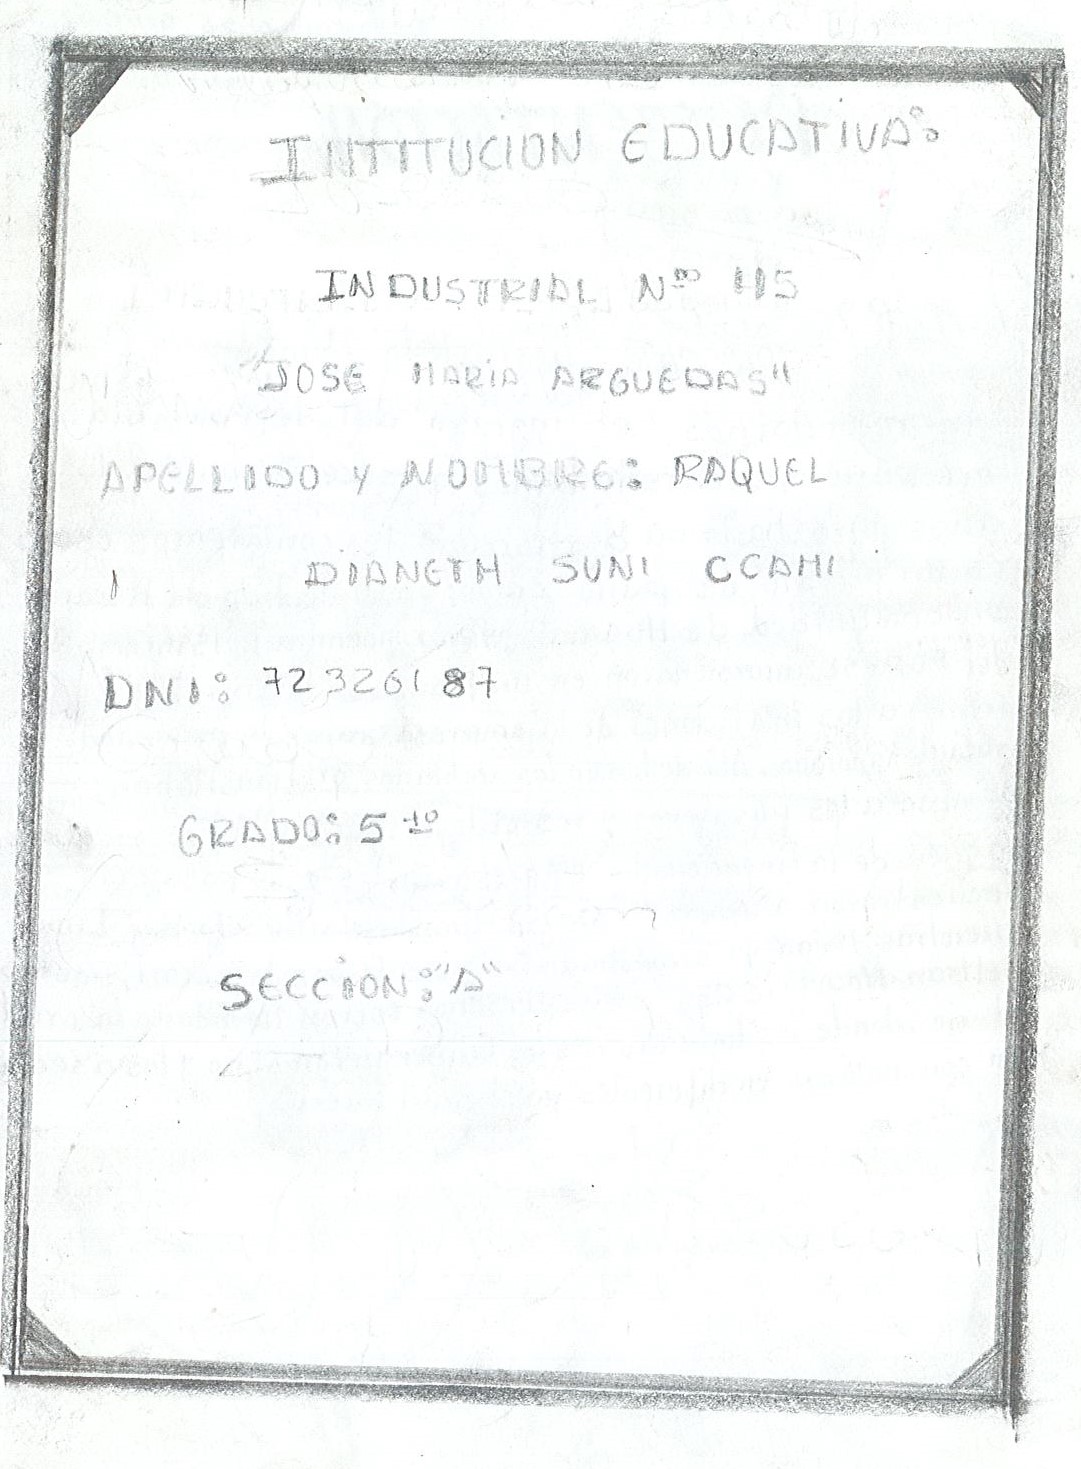 INTITUCION EDUCATIVA:
INDUSTRIAL Nº 45
"JOSE MARIA ARGUEDAS"
APELLIDO Y NOMBRE: RAQUEL
DIANETH SUNI CCAMI
DNI: 72326187
GRADO: 5to
SECCION: "A"